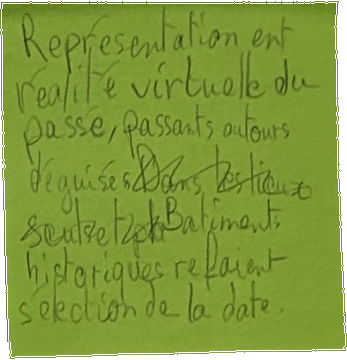 Représentation en
réalité virtuelle du
passé, passants autours
déguisés Dans les lieux
Batiments
historiques refaient
sélection de la date.